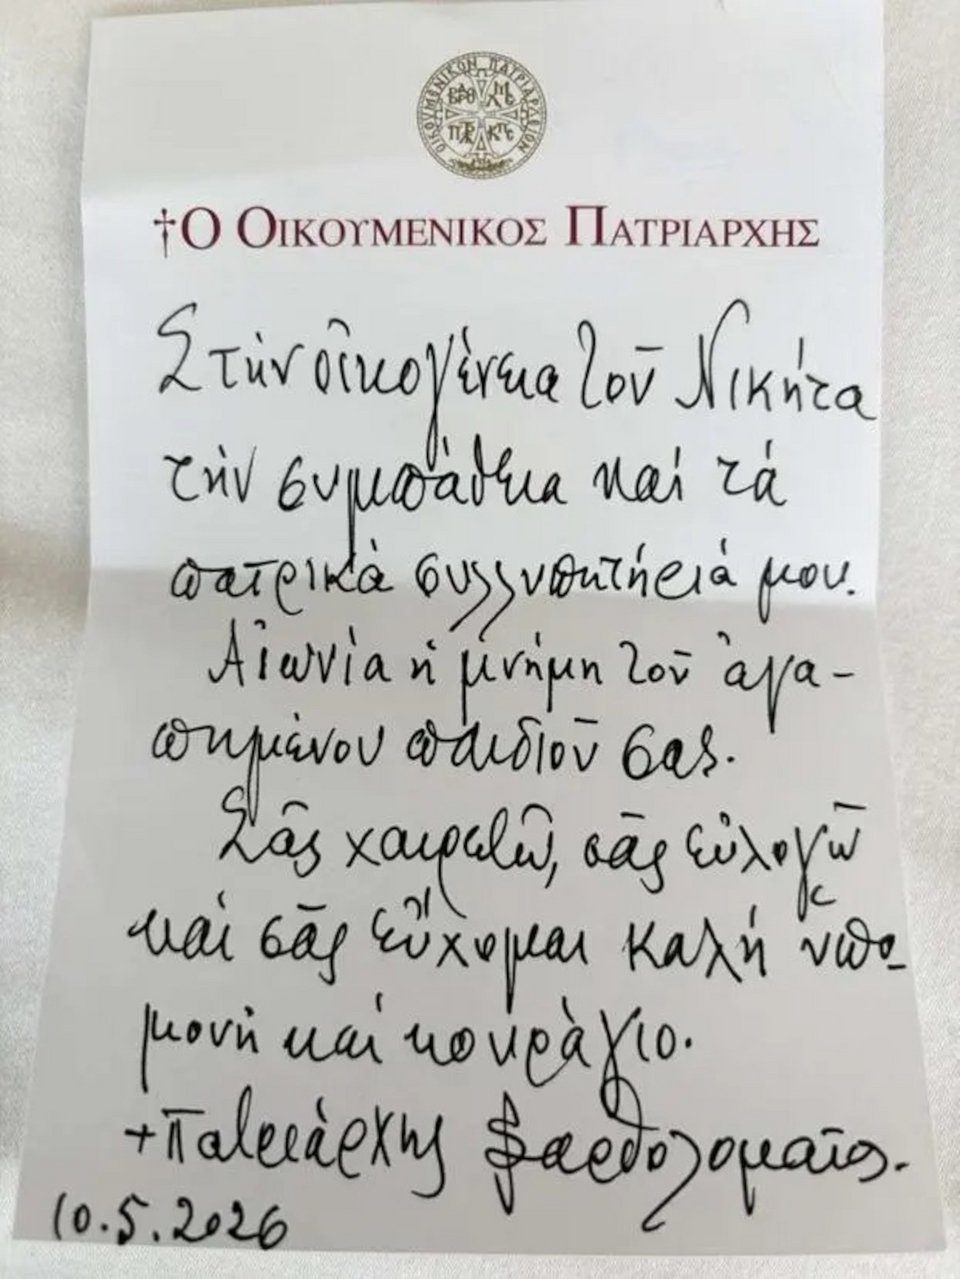 ΟΙΚΟΥΜΕΝΙΚΟΝ ΠΑΤΡΙΑΡΧΕΙΟΝ
†Ο ΟΙΚΟΥΜΕΝΙΚΟΣ ΠΑΤΡΙΑΡΧΗΣ
Στήν οἰκογένεια τοῦ Νικήτα
τήν συμπάθεια καί τά
πατρικά συλλυπητήριά μου.
Αἰωνία ἡ μνήμη τοῦ ἀγα-
πημένου παιδιοῦ σας.
Σᾶς χαιρετῶ, σᾶς εὐλογῶ
καί σᾶς εὔχομαι καλή ὑπο-
μονή καί κουράγιο.
+ Πατριάρχης Βαρθολομαῖος.
10.5.2026